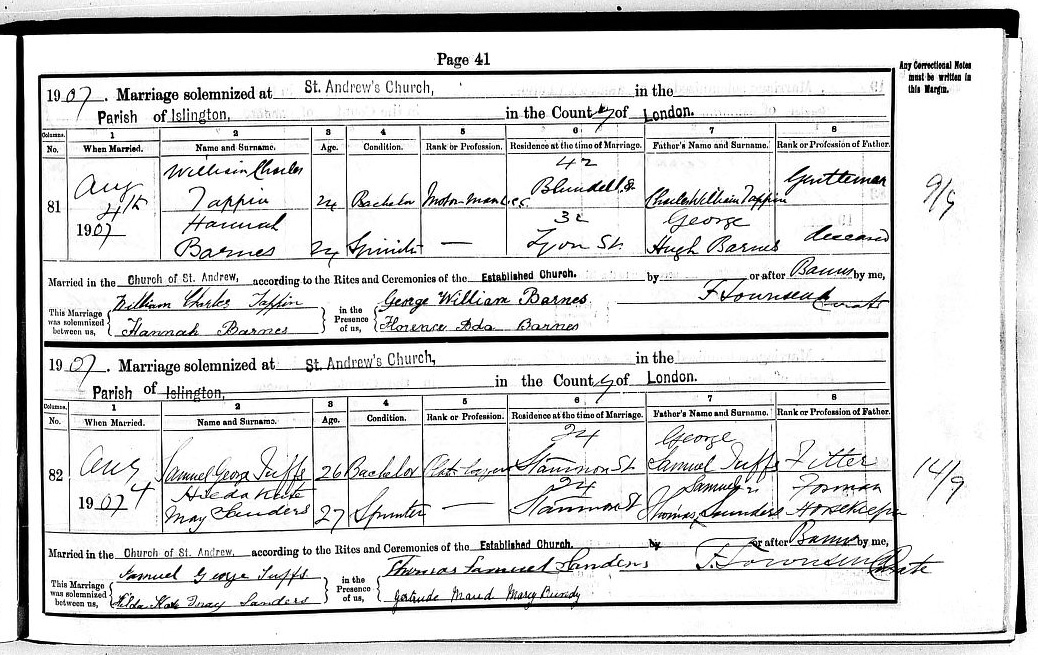 Page 41
Any Correctional Notes
must be written in
this Margin.
1907. Marriage solemnized at St. Andrew's Church, in the
Parish of Islington, in the County of London.
Columns. 1 2 3 4 5 6 7 8
No. When Married. Name and Surname. Age. Condition. Rank or Profession. Residence at the time of Marriage. Father's Name and Surname. Rank or Profession of Father.
81 Aug 4th 1907
William Charles Tappin 24 Bachelor Motor-man 42 Blundell St Charles William Tappin Gentleman
Hannah Barnes 24 Spinster — 32 Lyon St. George Hugh Barnes deceased
9/9
Married in the Church of St. Andrew, according to the Rites and Ceremonies of the Established Church. by or after Banns by me,
This Marriage was solemnized between us, William Charles Tappin Hannah Barnes in the Presence of us, George William Barnes Florence Ada Barnes F. Townsend Curate
1907. Marriage solemnized at St. Andrew's Church, in the
Parish of Islington, in the County of London.
Columns. 1 2 3 4 5 6 7 8
No. When Married. Name and Surname. Age. Condition. Rank or Profession. Residence at the time of Marriage. Father's Name and Surname. Rank or Profession of Father.
82 Aug 4 1907
Samuel George Tuffs 26 Bachelor 24 Stanmore St George Samuel Tuffs Fitter
Hilda Kate May Sanders 27 Spinster — 24 Stanmore St Samuel Thomas Saunders Forman Horsekeeper
14/9
Married in the Church of St. Andrew, according to the Rites and Ceremonies of the Established Church. by or after Banns by me,
This Marriage was solemnized between us, Samuel George Tuffs Hilda Kate May Sanders in the Presence of us, Thomas Samuel Sanders Gertrude Maud Mary Bundy F. Townsend Curate